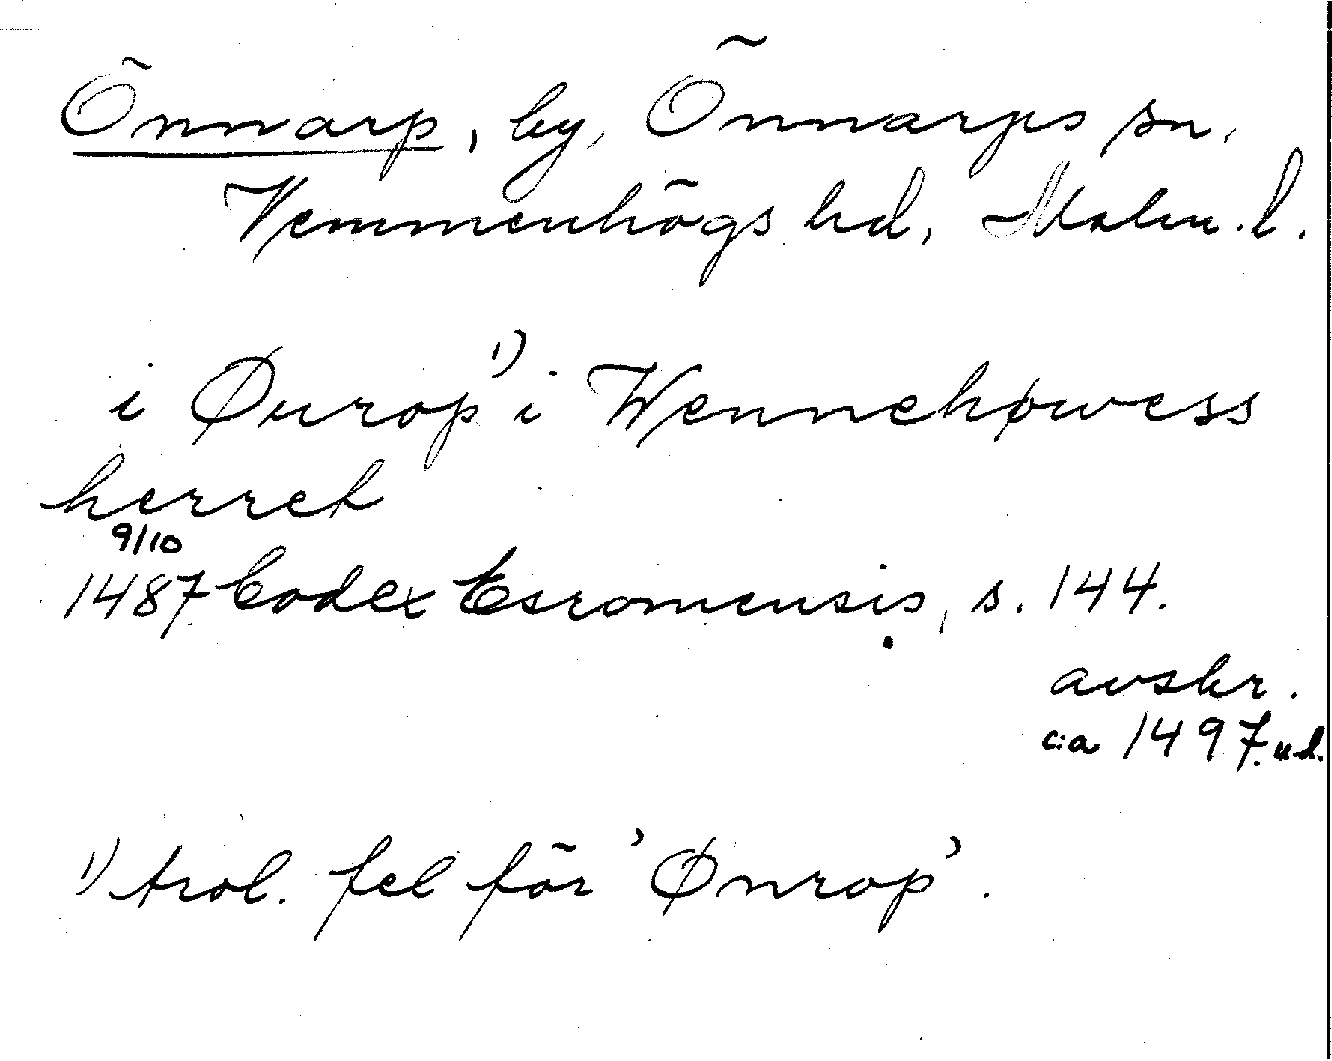 Önnarp, by, Önnarps sn,
Vemmenhögs hd, Malm. l.
i Øurop¹⁾ i Wennehøwess
herret
9/10
1487 Codex Esromensis, s. 144.
avskr.
c:a 1497.
1) trol. fel för 'Ønrop'.